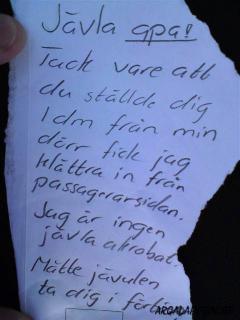 Jävla apa!
Tack vare att
du ställde dig
1 dm från min
dörr fick jag
klättra in från
passagerarsidan.
Jag är ingen
jävla akrobat.
Måtte jävulen
ta dig i